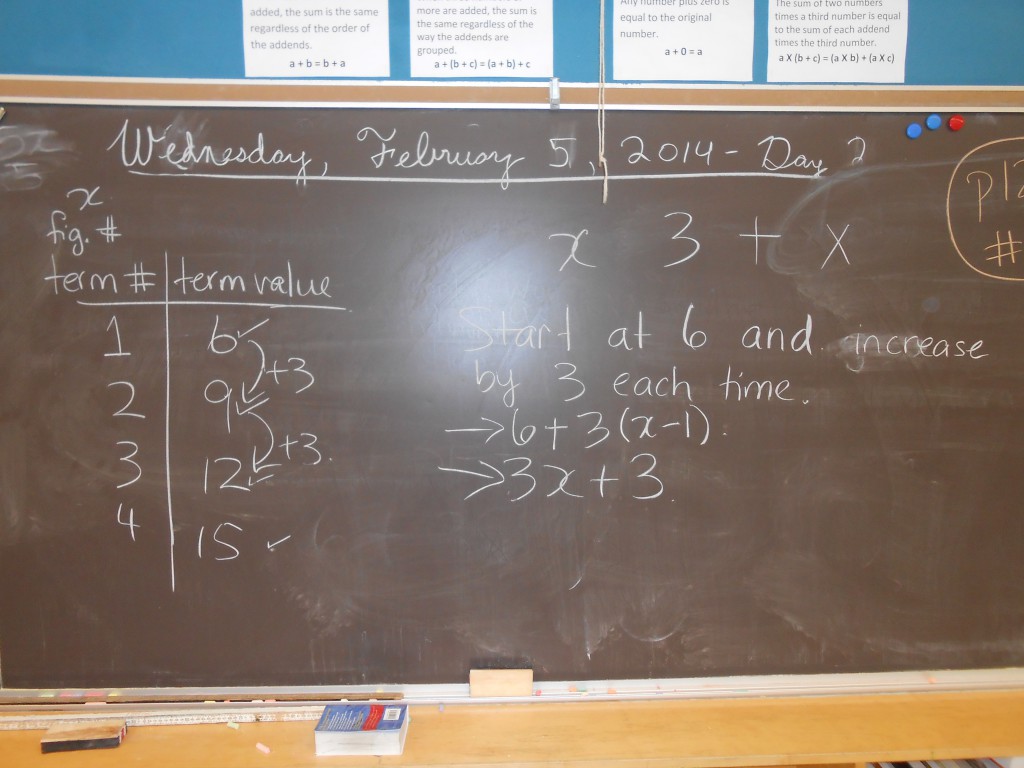 added, the sum is the same
regardless of the order of
the addends.
a + b = b + a
more are added, the sum is
the same regardless of the
way the addends are
grouped.
a + (b + c) = (a + b) + c
Any number plus zero is
equal to the original
number.
a + 0 = a
The sum of two numbers
times a third number is equal
to the sum of each addend
times the third number.
a X (b + c) = (a X b) + (a X c)
Wednesday, February 5, 2014 - Day 2
x
fig. #
term # term value
1 6
+3
2 9
+3
3 12
4 15
x 3 + x
Start at 6 and increase
by 3 each time.
→ 6 + 3(x-1)
→ 3x + 3
p12
#